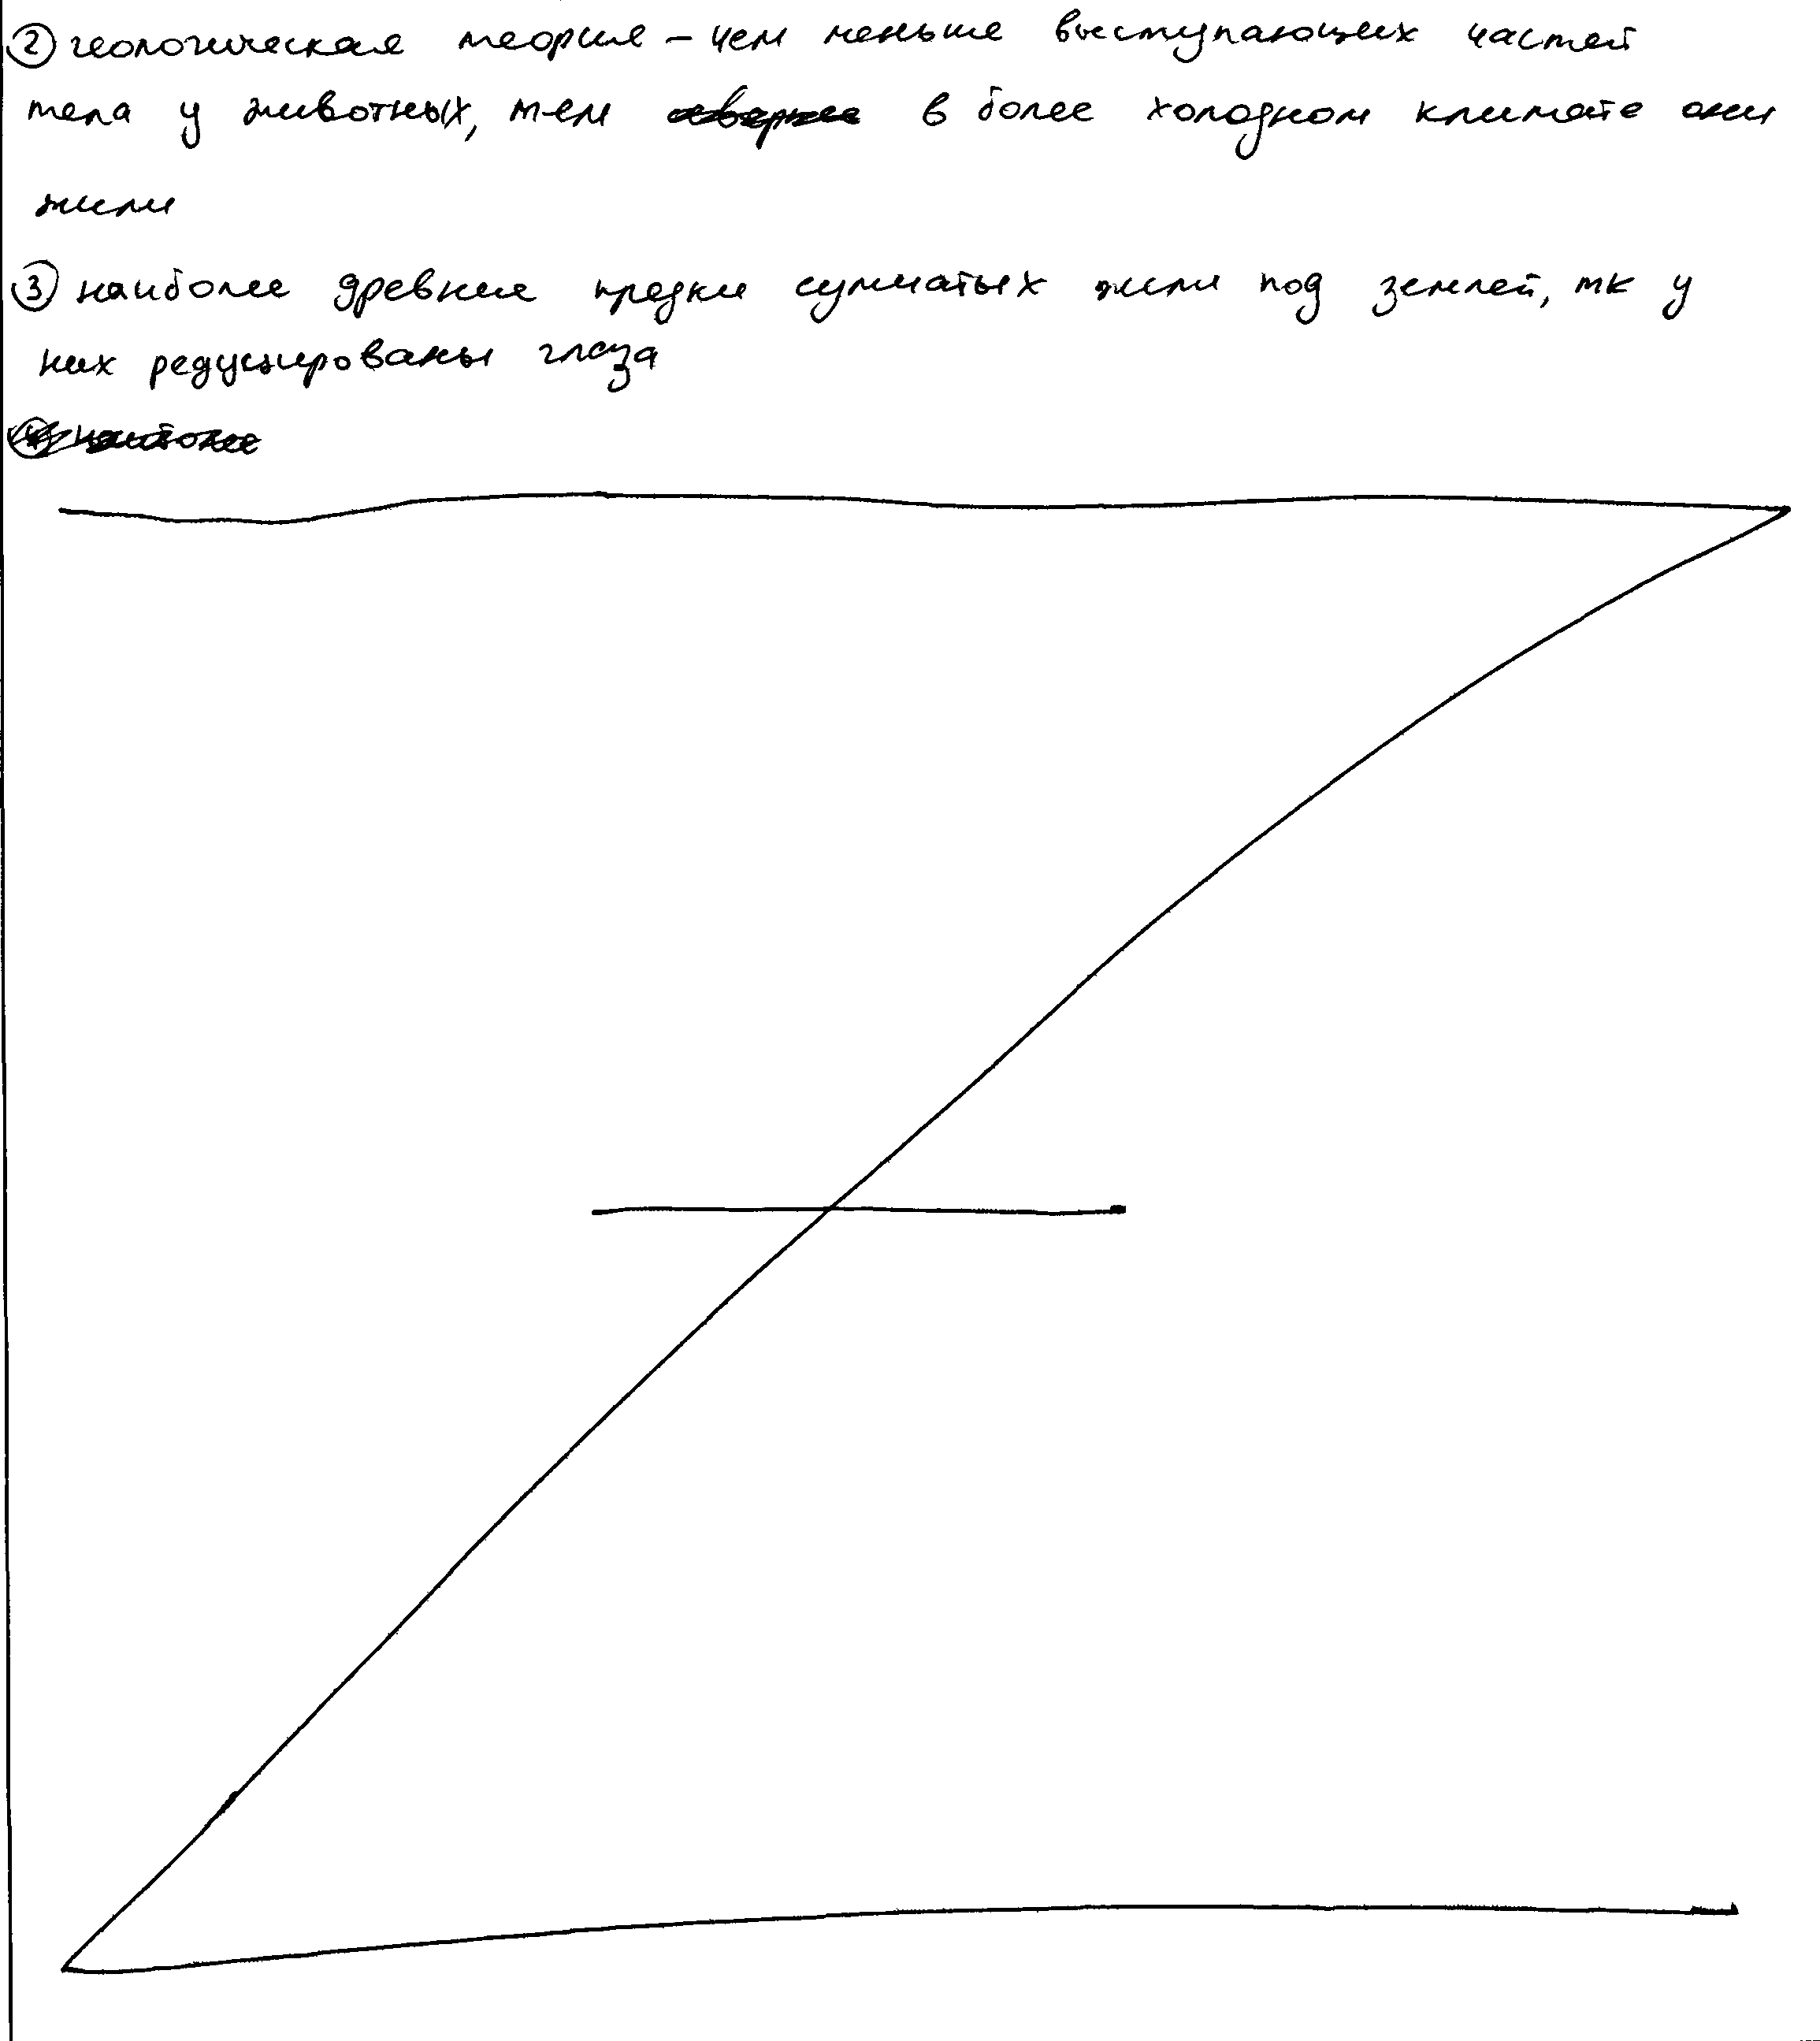 ② геологическая теория – чем меньше выступающих частей
тела у животных, тем в более холодном климате они
жили
③ наиболее древние предки сумчатых жили под землей, тк у
них редуцированы глаза